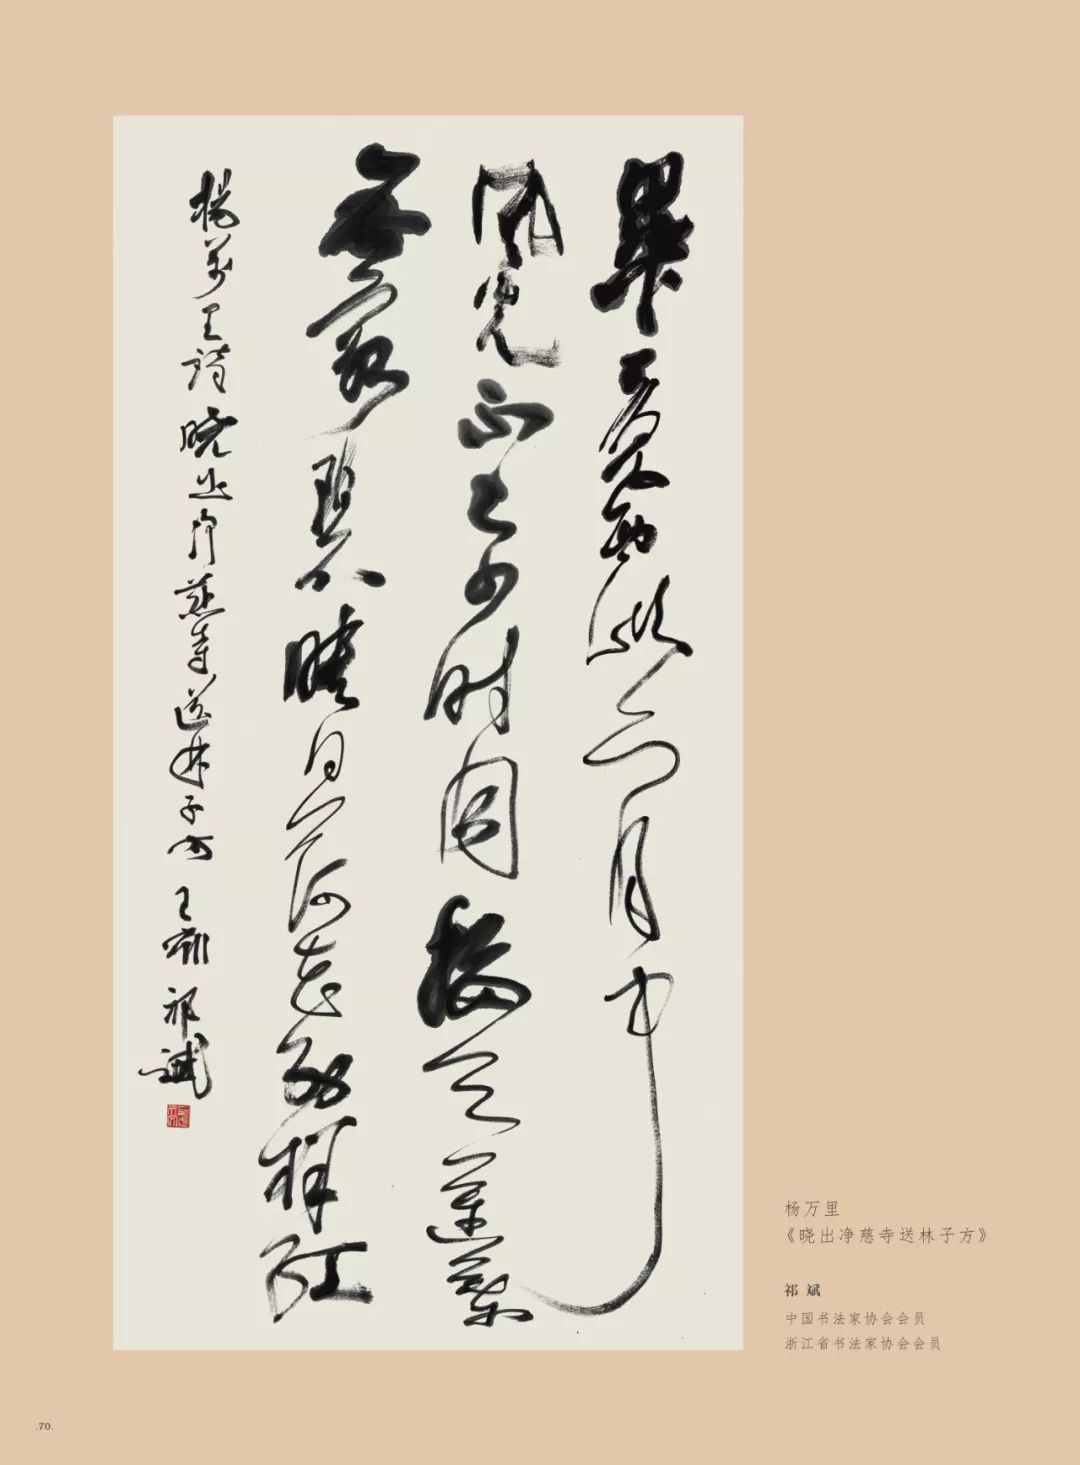 畢竟西湖六月中
風光不与四时同接天蓮葉
無窮碧映日荷花别樣紅
楊萬里詩曉出净慈寺送林子方 祁斌
杨万里
《晓出净慈寺送林子方》
祁斌
中国书法家协会会员
浙江省书法家协会会员
.70.